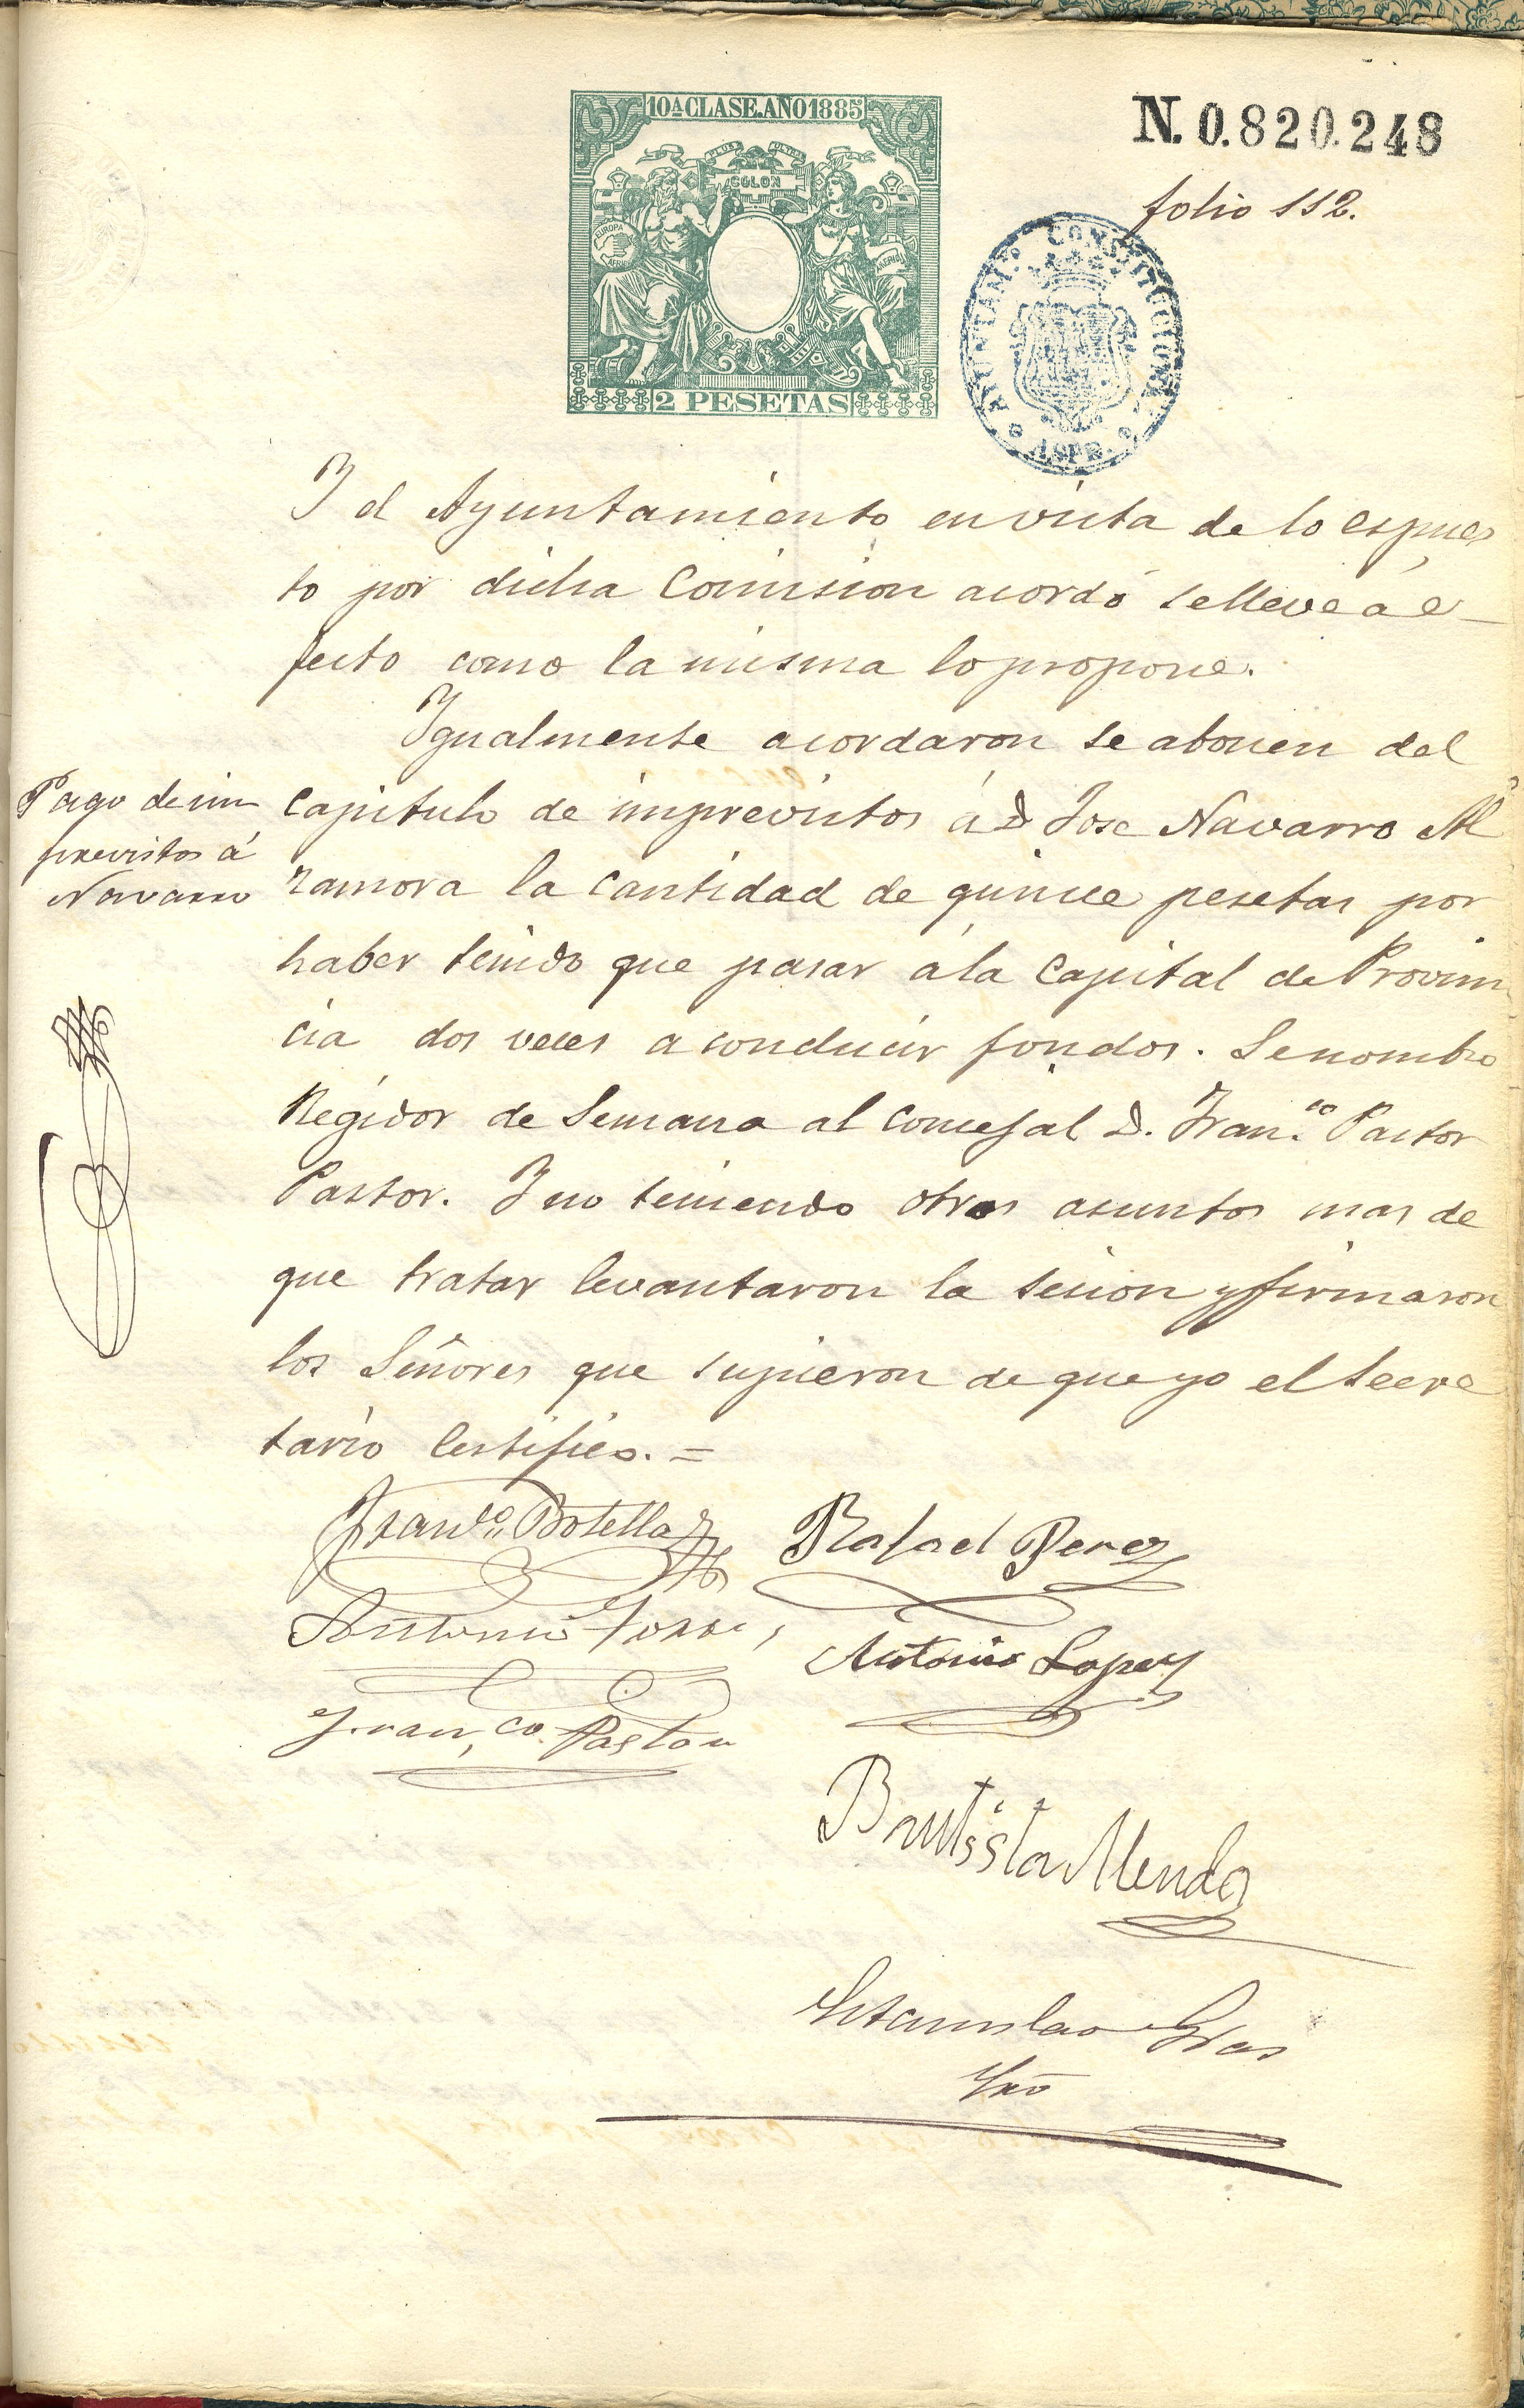 10ª CLASE. AÑO 1885
PLUS ULTRA
COLON
EUROPA
AFRICA
2 PESETAS
N. 0.820.248
folio 112.
AYUNTAM.º CONSTITUCIONAL
ASPE
Y el Ayuntamiento en vista de lo espues
to por dicha Comision acordó se lleve á e-
fecto como la misma lo propone.
Igualmente acordaron se abonen del
capitulo de imprevistos á D Jose Navarro Al
zamora la cantidad de quince pesetas por
haber tenido que pasar á la Capital de Provin
cia dos veces a conducir fondos. Se nombro
Regidor de Semana al concejal D. Fran.co Pastor
Pastor. Y no teniendo otros asuntos mas de
que tratar levantaron la sesion y firmaron
los Señores que supieron de que yo el Secre
tario Certifico. =
Pago de im
previstos á
Navarro
Franco. Botella
Rafael Perez
Antonio
Antonio Lopez
Fran,co. Pastor
Bautista Mendo
Estanislao Gras
Srio